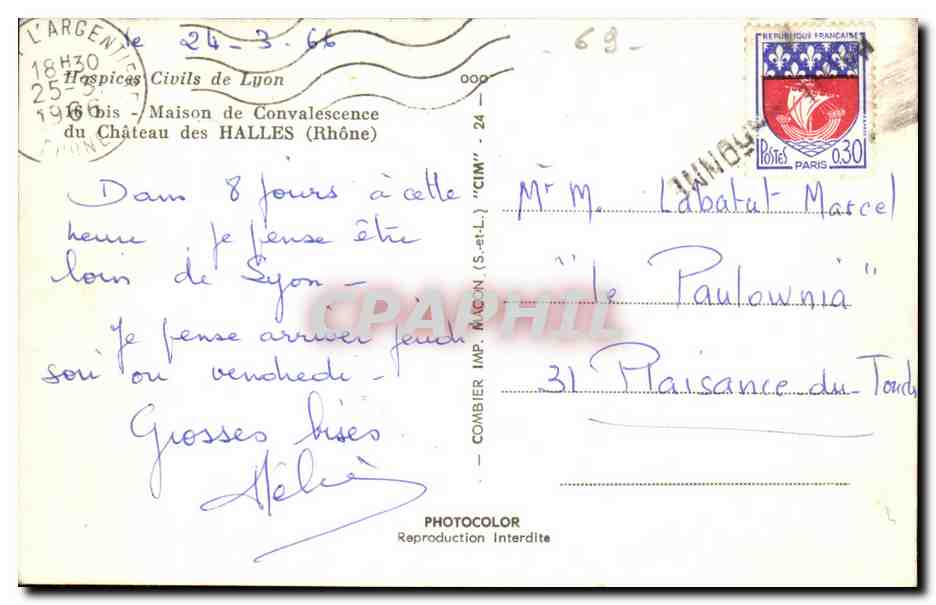 le 24-3-66
- 69 -
L'ARGENTIERE
18H30
25-3
1966
RHONE
Hospices Civils de Lyon
16 bis - Maison de Convalescence
du Château des HALLES (Rhône)
Dans 8 jours à cette
heure je pense être
loin de Lyon -
Je pense arriver jeudi
soir ou vendredi -
Grosses bises
COMBIER IMP. MACON (S.-et-L.) "CIM" - 24 - ooo
REPUBLIQUE FRANÇAISE
POSTES 0,30
PARIS
Mr M. Labatut Marcel
"le Paulownia"
31 Plaisance-du-Touch
CPAPHIL
PHOTOCOLOR
Reproduction Interdite